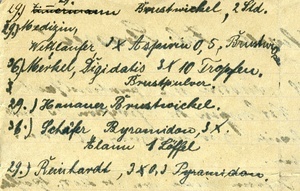 Brustwickel, 2 Std.
29.) Medizin,
Wikläufer 3 X Aspirin 0,5,
26) Merkel, Digidatis 3 X 10 Tropfen.
Brustpulver.
29.) Hanauer, Brustwickel.
36.) Schäfer Pyramidon, 3 X.
1 Löffel
29.) Reinhardt, 3 X 0,3 Pyramidon.